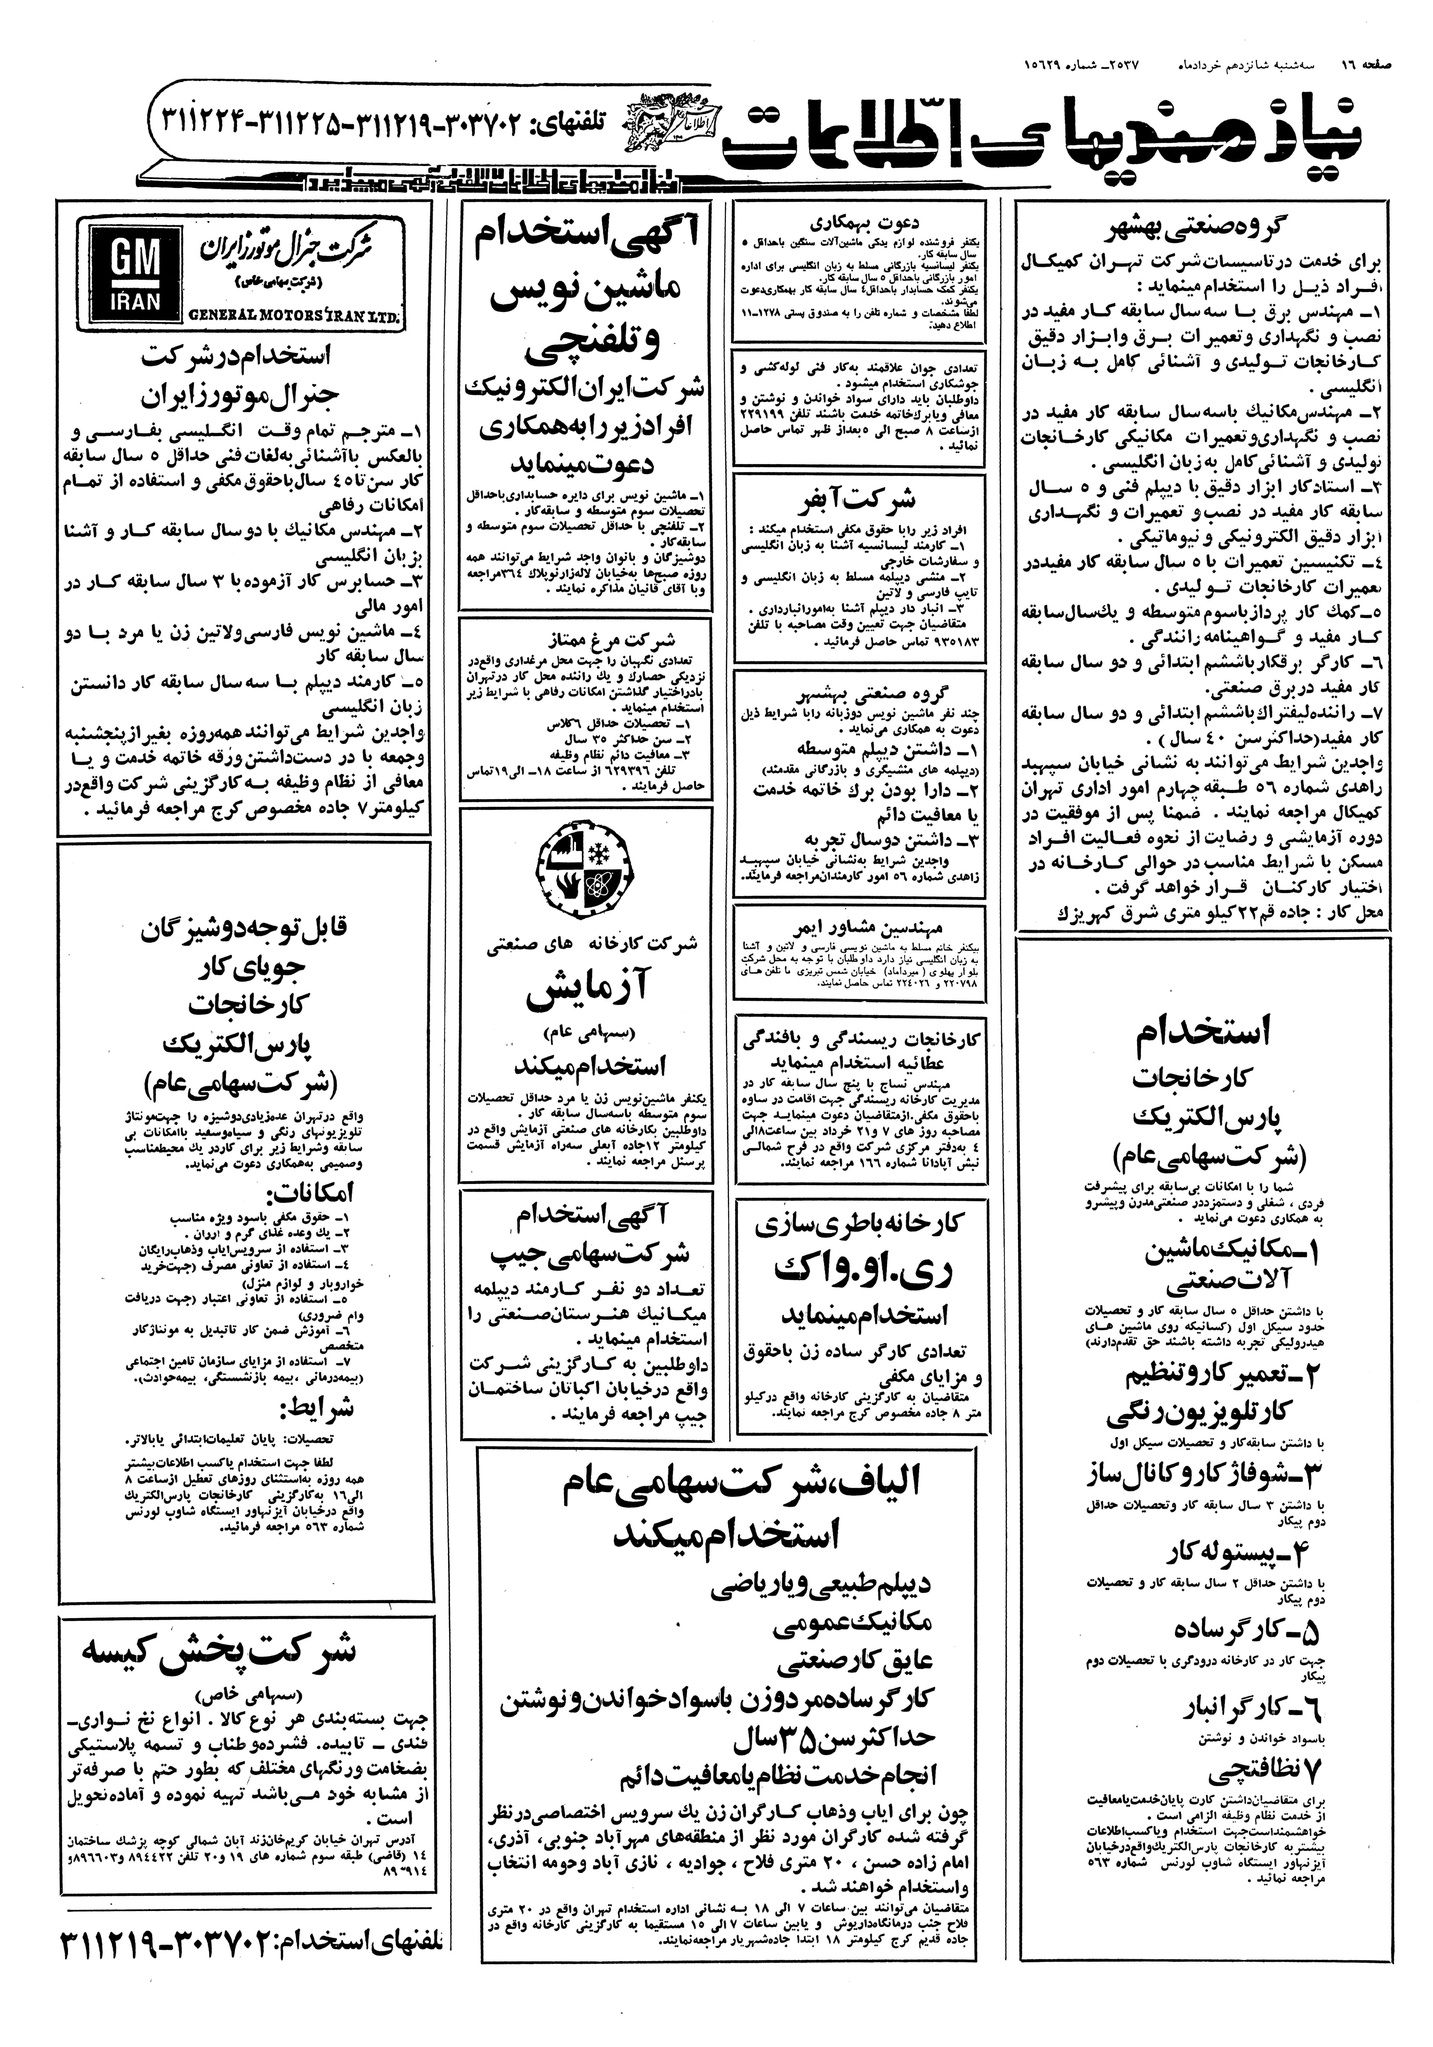 صفحه ۱۶ سه‌شنبه شانزدهم خردادماه ۲۵۳۷ـ شماره ۱۵۶۲۹
نیازمندیهای اطلاعات
تلفنهای: ۳۰۳۷۰۲-۳۱۱۲۱۹-۳۱۱۲۲۵-۳۱۱۲۲۴
نیازمندیهای اطلاعات تلفنی آگهی میپذیرد
گروه صنعتی بهشهر
برای خدمت در تاسیسات شرکت تهران کمیکال
افراد ذیل را استخدام مینماید :
۱ـ مهندس برق با سه سال سابقه کار مفید در
نصب و نگهداری و تعمیرات برق وابزار دقیق
کارخانجات تولیدی و آشنائی کامل به زبان
انگلیسی .
۲ـ مهندس مکانیک باسه سال سابقه کار مفید در
نصب و نگهداری وتعمیرات مکانیکی کارخانجات
تولیدی و آشنائی کامل به زبان انگلیسی .
۳ـ استادکار ابزار دقیق با دیپلم فنی و ۵ سال
سابقه کار مفید در نصب و تعمیرات و نگهداری
ابزار دقیق الکترونیکی و نیوماتیکی .
۴ـ تکنیسین تعمیرات با ۵ سال سابقه کار مفیددر
تعمیرات کارخانجات تولیدی .
۵ـ کمک کار پرداز باسوم متوسطه و یک سال سابقه
کار مفید و گواهینامه رانندگی .
۶ـ کارگر برقکار باششم ابتدائی و دو سال سابقه
کار مفید در برق صنعتی.
۷ـ راننده لیفتراک باششم ابتدائی و دو سال سابقه
کار مفید (حداکثر سن ۴۰ سال ) .
واجدین شرایط می‌توانند به نشانی خیابان سپهبد
زاهدی شماره ۵۶ طبقه چهارم امور اداری تهران
کمیکال مراجعه نمایند . ضمنا پس از موفقیت در
دوره آزمایشی و رضایت از نحوه فعالیت افراد
مسکن با شرایط مناسب در حوالی کارخانه در
اختیار کارکنان قرار خواهد گرفت .
محل کار : جاده قم ۲۲ کیلو متری شرق کهریزک
استخدام
کارخانجات
پارس الکتریک
(شرکت سهامی عام)
شما را با امکانات بی‌سابقه برای پیشرفت
فردی ، شغلی و دستمزددر صنعتی مدرن وپیشرو
به همکاری دعوت می‌نماید .
۱ـ مکانیک ماشین
آلات صنعتی
با داشتن حداقل ۵ سال سابقه کار و تحصیلات
حدود سیکل اول (کسانیکه روی ماشین های
هیدرولیکی تجربه داشته باشند حق تقدم دارند)
۲ـ تعمیر کار و تنظیم
کار تلویزیون رنگی
با داشتن سابقه کار و تحصیلات سیکل اول
۳ـ شوفاژ کار و کانال ساز
با داشتن ۳ سال سابقه کار وتحصیلات حداقل
دوم پیکار
۴ـ پیستوله کار
با داشتن حداقل ۲ سال سابقه کار و تحصیلات
دوم پیکار
۵ـ کارگر ساده
جهت کار در کارخانه درودگری با تحصیلات دوم
پیکار
۶ـ کارگر انبار
باسواد خواندن و نوشتن
۷ نظافتچی
برای متقاضیان داشتن کارت پایان خدمت یا معافیت
از خدمت نظام وظیفه الزامی است .
خواهشمنداست جهت استخدام ویا کسب اطلاعات
بیشتر به کارخانجات پارس الکتریک واقع در خیابان
آیزنهاور ایستگاه شاوب لورنس شماره ۵۶۳
مراجعه نمائید .
دعوت بهمکاری
یکنفر فروشنده لوازم یدکی ماشین‌آلات سنگین باحداقل ۵
سال سابقه کار.
یکنفر لیسانسیه بازرگانی مسلط به زبان انگلیسی برای اداره
امور بازرگانی باحداقل ۵ سال سابقه کار.
یکنفر کمک حسابدار باحداقل ۴ سال سابقه کار بهمکاری دعوت
می‌شوند.
لطفا مشخصات و شماره تلفن را به صندوق پستی ۱۲۷۸ـ۱۱
اطلاع دهید.
تعدادی جوان علاقمند به کار فنی لوله کشی و
جوشکاری استخدام میشود .
داوطلبان باید دارای سواد خواندن و نوشتن و
معافی ویابرک خاتمه خدمت باشند تلفن ۲۲۹۱۹۹
از ساعت ۸ صبح الی ۵ بعداز ظهر تماس حاصل
نمائید .
شرکت آبفر
افراد زیر رابا حقوق مکفی استخدام میکند :
۱ـ کارمند لیسانسیه آشنا به زبان انگلیسی
و سفارشات خارجی
۲ـ منشی دیپلمه مسلط به زبان انگلیسی و
تایپ فارسی و لاتین
۳ـ انبار دار دیپلم آشنا به امور انبارداری .
متقاضیان جهت تعیین وقت مصاحبه با تلفن
۹۳۵۱۸۳ تماس حاصل فرمائید .
گروه صنعتی بهشهر
چند نفر ماشین نویس دوزبانه رابا شرایط ذیل
دعوت به همکاری می‌نماید .
۱ـ داشتن دیپلم متوسطه
(دیپلمه های منشیگری و بازرگانی مقدمند)
۲ـ دارا بودن برک خاتمه خدمت
یا معافیت دائم
۳ـ داشتن دوسال تجربه
واجدین شرایط به‌نشانی خیابان سپهبد
زاهدی شماره ۵۶ امور کارمندان مراجعه فرمایند.
مهندسین مشاور ایمر
بیکنفر خانم مسلط به ماشین نویسی فارسی و لاتین و آشنا
به زبان انگلیسی نیاز دارد داوطلبان با توجه به محل شرکت
بلوار پهلوی (میرداماد) خیابان شمس تبریزی با تلفن های
۲۲۰۷۹۸ و ۲۲۴۰۲۶ تماس حاصل نمایند.
کارخانجات ریسندگی و بافندگی
عطائیه استخدام مینماید
مهندس نساج با پنج سال سابقه کار در
مدیریت کارخانه ریسندگی جهت اقامت در ساوه
باحقوق مکفی.ازمتقاضیان دعوت مینماید جهت
مصاحبه روز های ۷ و ۲۱ خرداد بین ساعت ۸ الی
۴ به‌دفتر مرکزی شرکت واقع در فرح شمالی
نبش آپادانا شماره ۱۶۶ مراجعه نمایند.
کارخانه باطری سازی
ری.او.واک
استخدام مینماید
تعدادی کارگر ساده زن باحقوق
و مزایای مکفی
متقاضیان به کارگزینی کارخانه واقع درکیلو
متر ۸ جاده مخصوص کرج مراجعه نمایند.
آگهی استخدام
ماشین نویس
و تلفنچی
شرکت ایران الکترونیک
افراد زیر را به همکاری
دعوت مینماید
۱ـ ماشین نویس برای دایره حسابداری باحداقل
تحصیلات سوم متوسطه و سابقه کار .
۲ـ تلفنچی با حداقل تحصیلات سوم متوسطه و
سابقه کار .
دوشیزگان و بانوان واجد شرایط می‌توانند همه
روزه صبح‌ها به‌خیابان لاله‌زارنو پلاک ۳۶۴ مراجعه
وبا آقای قانیان مذاکره نمایند .
شرکت مرغ ممتاز
تعدادی نگهبان را جهت محل مرغداری واقع در
نزدیکی حصارک و یک راننده محل کار در تهران
بادراختیار گذاشتن امکانات رفاهی با شرایط زیر
استخدام مینماید .
۱ـ تحصیلات حداقل ۶ کلاس
۲ـ سن حداکثر ۳۵ سال
۳ـ معافیت دائم نظام وظیفه
تلفن ۶۲۹۳۹۶ از ساعت ۱۸ـ الی ۱۹ تماس
حاصل فرمایند .
شرکت کارخانه های صنعتی
آزمایش
(سهامی عام)
استخدام میکند
یکنفر ماشین‌نویس زن یا مرد حداقل تحصیلات
سوم متوسطه باسه سال سابقه کار .
داوطلبین بکارخانه های صنعتی آزمایش واقع در
کیلومتر ۱۲ جاده آبعلی سه راه آزمایش قسمت
پرسنل مراجعه نمایند .
آگهی استخدام
شرکت سهامی جیپ
تعداد دو نفر کارمند دیپلمه
میکانیک هنرستان صنعتی را
استخدام مینماید .
داوطلبین به کارگزینی شرکت
واقع در خیابان اکباتان ساختمان
جیپ مراجعه فرمایند .
الیاف، شرکت سهامی عام
استخدام میکند
دیپلم طبیعی و یا ریاضی
مکانیک عمومی
عایق کار صنعتی
کارگر ساده مرد و زن باسواد خواندن و نوشتن
حداکثر سن ۳۵ سال
انجام خدمت نظام یا معافیت دائم
چون برای ایاب وذهاب کارگران زن یک سرویس اختصاصی در نظر
گرفته شده کارگران مورد نظر از منطقه‌های مهرآباد جنوبی، آذری،
امام زاده حسن، ۲۰ متری فلاح ، جوادیه ، نازی آباد وحومه انتخاب
واستخدام خواهند شد .
متقاضیان می‌توانند بین ساعات ۷ الی ۱۸ به نشانی اداره استخدام تهران واقع در ۲۰ متری
فلاح جنب درمانگاه داریوش و یابین ساعات ۷ الی ۱۵ مستقیما به کارگزینی کارخانه واقع در
جاده قدیم کرج کیلومتر ۱۸ ابتدا جاده شهریار مراجعه نمایند.
شرکت جنرال موتورز ایران
(شرکت سهامی خاص)
GM
IRAN
GENERAL MOTORS IRAN LTD.
استخدام در شرکت
جنرال موتورز ایران
۱ـ مترجم تمام وقت انگلیسی بفارسی و
بالعکس باآشنائی به‌لغات فنی حداقل ۵ سال سابقه
کار سن تا ۴۵ سال باحقوق مکفی و استفاده از تمام
امکانات رفاهی
۲ـ مهندس مکانیک با دو سال سابقه کار و آشنا
بزبان انگلیسی
۳ـ حسابرس کار آزموده با ۳ سال سابقه کار در
امور مالی
۴ـ ماشین نویس فارسی ولاتین زن یا مرد با دو
سال سابقه کار
۵ـ کارمند دیپلم با سه سال سابقه کار دانستن
زبان انگلیسی
واجدین شرایط می‌توانند همه‌روزه بغیر از پنجشنبه
وجمعه با در دست‌داشتن ورقه خاتمه خدمت و یا
معافی از نظام وظیفه به کارگزینی شرکت واقع در
کیلومتر ۷ جاده مخصوص کرج مراجعه فرمائید .
قابل توجه دوشیزگان
جویای کار
کارخانجات
پارس الکتریک
(شرکت سهامی عام)
واقع در تهران عده زیادی دوشیزه را جهت مونتاژ
تلویزیونهای رنگی و سیاه وسفید باامکانات بی
سابقه وشرایط زیر برای کار در یک محیط مناسب
وصمیمی به‌همکاری دعوت می‌نماید.
امکانات:
۱ـ حقوق مکفی باسود ویژه مناسب
۲ـ یک وعده غذای گرم و ارزان .
۳ـ استفاده از سرویس ایاب وذهاب رایگان
۴ـ استفاده از تعاونی مصرف (جهت خرید
خواروبار و لوازم منزل)
۵ـ استفاده از تعاونی اعتبار (جهت دریافت
وام ضروری)
۶ـ آموزش ضمن کار تاتبدیل به مونتاژکار
متخصص
۷ـ استفاده از مزایای سازمان تامین اجتماعی
(بیمه درمانی ، بیمه بازنشستگی، بیمه حوادث).
شرایط:
تحصیلات: پایان تعلیمات ابتدائی یا بالاتر.
لطفا جهت استخدام یاکسب اطلاعات بیشتر
همه روزه به‌استثنای روزهای تعطیل از ساعت ۸
الی ۱۶ به کارگزینی کارخانجات پارس الکتریک
واقع در خیابان آیزنهاور ایستگاه شاوب لورنس
شماره ۵۶۳ مراجعه فرمائید.
شرکت پخش کیسه
(سهامی خاص)
جهت بسته‌بندی هر نوع کالا . انواع نخ نواری-
قندی ـ تابیده. فشرده وطناب و تسمه پلاستیکی
بضخامت ورنگهای مختلف که بطور حتم با صرفه‌تر
از مشابه خود می‌باشد تهیه نموده و آماده تحویل
است .
آدرس تهران خیابان کریم خان زند آبان شمالی کوچه پزشک ساختمان
۱۴ (قاضی) طبقه سوم شماره های ۱۹ و ۲۰ تلفن ۸۹۴۴۲۲ و ۸۹۶۶۰۳ و
تلفنهای استخدام: ۳۰۳۷۰۲-۳۱۱۲۱۹